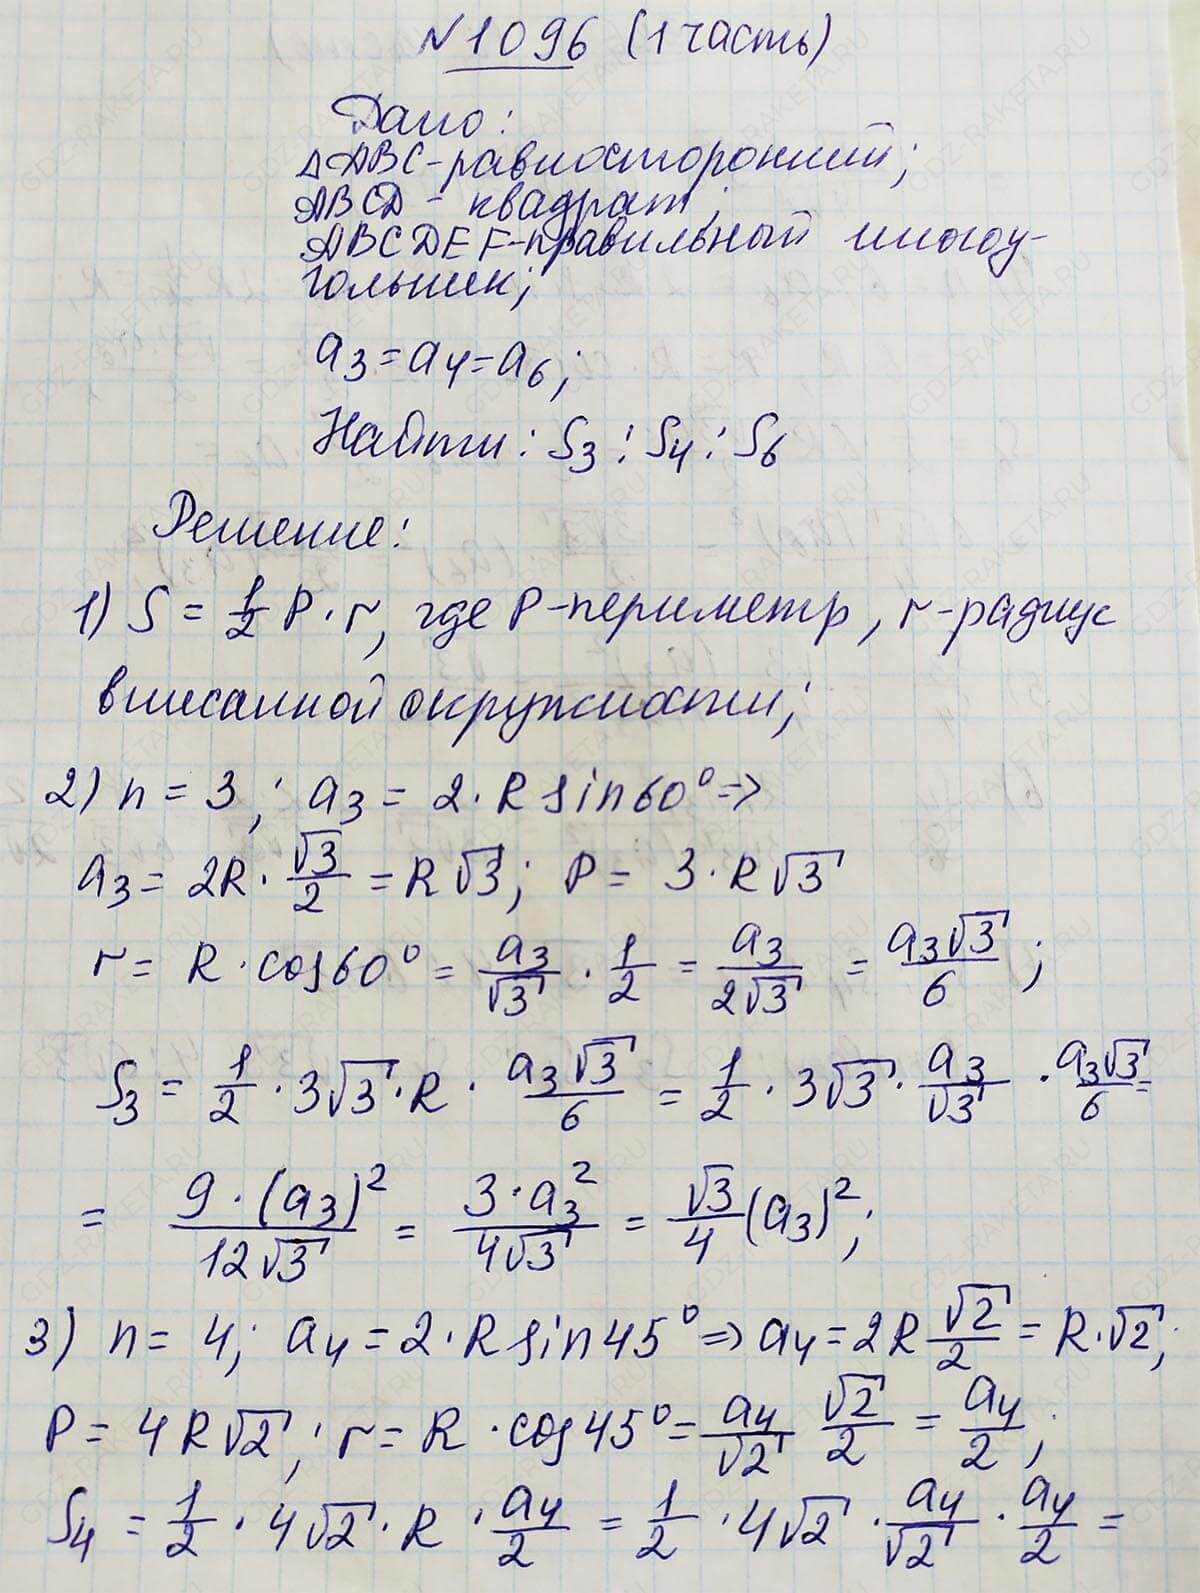 №1096 (1 часть)
Дано:
△ABC-равносторонний;
ABCD - квадрат;
ABCDEF-правильный многоу-
гольник;
a₃=a₄=a₆;
Найти: S₃:S₄:S₆
Решение:
1) S = 1/2 P·r, где P-периметр, r-радиус
вписанной окружности;
2) n = 3; a₃ = 2·R sin60°=>
a₃ = 2R·√3/2 = R√3; P = 3·R√3
r = R·cos60° = a₃/√3 · 1/2 = a₃/2√3 = a₃√3/6;
S₃ = 1/2 · 3√3·R · a₃√3/6 = 1/2 · 3√3 · a₃/√3 · a₃√3/6 =
= 9·(a₃)²/12√3 = 3·a₃²/4√3 = √3/4 (a₃)²;
3) n = 4; a₄ = 2·R sin45° => a₄ = 2R √2/2 = R·√2;
P = 4R√2; r = R·cos45° = a₄/√2 √2/2 = a₄/2;
S₄ = 1/2 · 4√2·R · a₄/2 = 1/2 · 4√2 · a₄/√2 · a₄/2 =
GDZ-RAKETA.RU